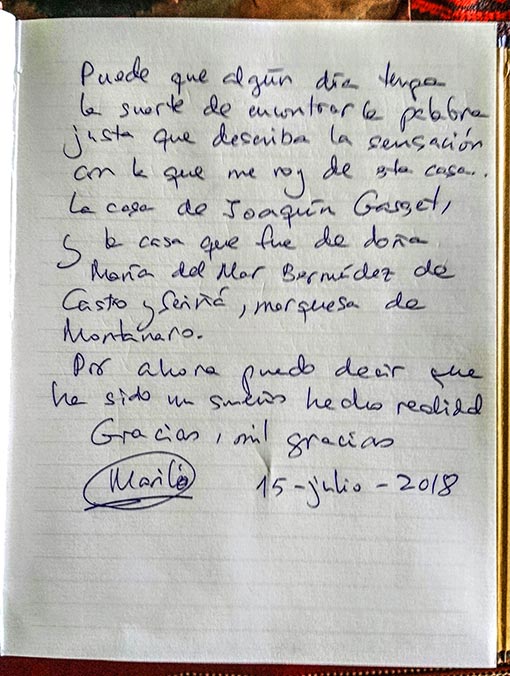 Puede que algún día tenga
la suerte de encontrar la palabra
justa que describa la sensación
con la que me voy de esta casa..
La casa de Joaquín Gasset,
y la casa que fue de doña
María del Mar Bermúdez de
Castro y Seriñá, marquesa de
Montanaro.
Por ahora puedo decir que
ha sido un sueño hecho realidad
Gracias, mil gracias
Mariló 15-julio-2018